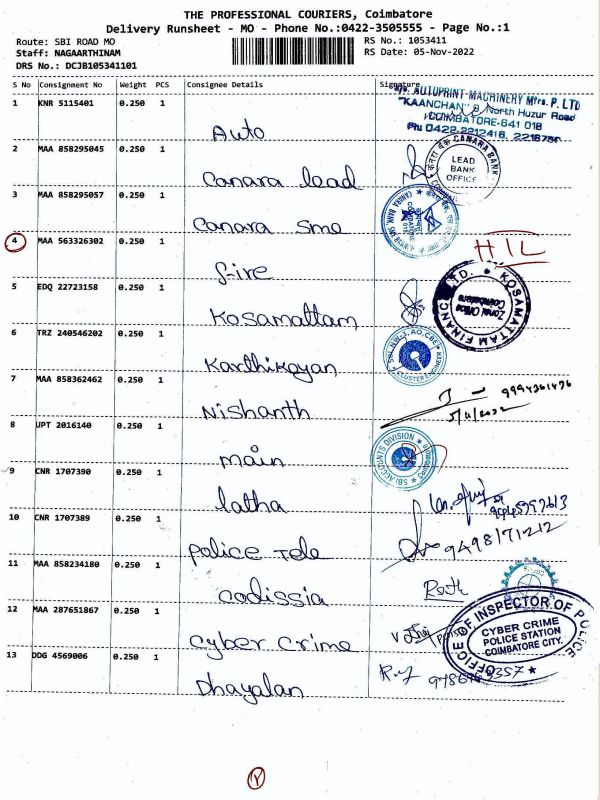 THE PROFESSIONAL COURIERS, Coimbatore
Delivery Runsheet - MO - Phone No.:0422-3505555 - Page No.:1
Route: SBI ROAD MO RS No.: 1053411
Staff: NAGAARTHINAM RS Date: 05-Nov-2022
DRS No.: DCJB105341101
S No Consignment No Weight PCS Consignee Details Signature
1 KNR 5115401 0.250 1 Auto
AUTOPRINT MACHINERY Mfrs. P. LTD
"KAANCHAN" 8, North Huzur Road
COIMBATORE-641 018
Ph: 0422-2212416,
2 MAA 858295045 0.250 1 Canara lead
CANARA BANK
LEAD
BANK
OFFICE
3 MAA 858295057 0.250 1 Canara Sme
4 MAA 563326302 0.250 1 fire HIL
5 EDQ 22723158 0.250 1 Kosamattam
KOSAMATTAM FINANCE LTD.
Zonal Office
Coimbatore
6 TRZ 240546202 0.250 1 Karthikayan
CLUSTER ENGINEER
7 MAA 858362462 0.250 1 Nishanth
5/11/2022
8 UPT 2016140 0.250 1 main
SBI ACCOUNTS DIVISION
9 CNR 1707390 0.250 1 latha
10 CNR 1707389 0.250 1 police Tele 9498171212
11 MAA 858234180 0.250 1 codissia
12 MAA 287651867 0.250 1 cyber Crime
OFFICE OF INSPECTOR OF POLICE
CYBER CRIME
POLICE STATION
COIMBATORE CITY.
13 DDG 4569006 0.250 1 Dhayalan